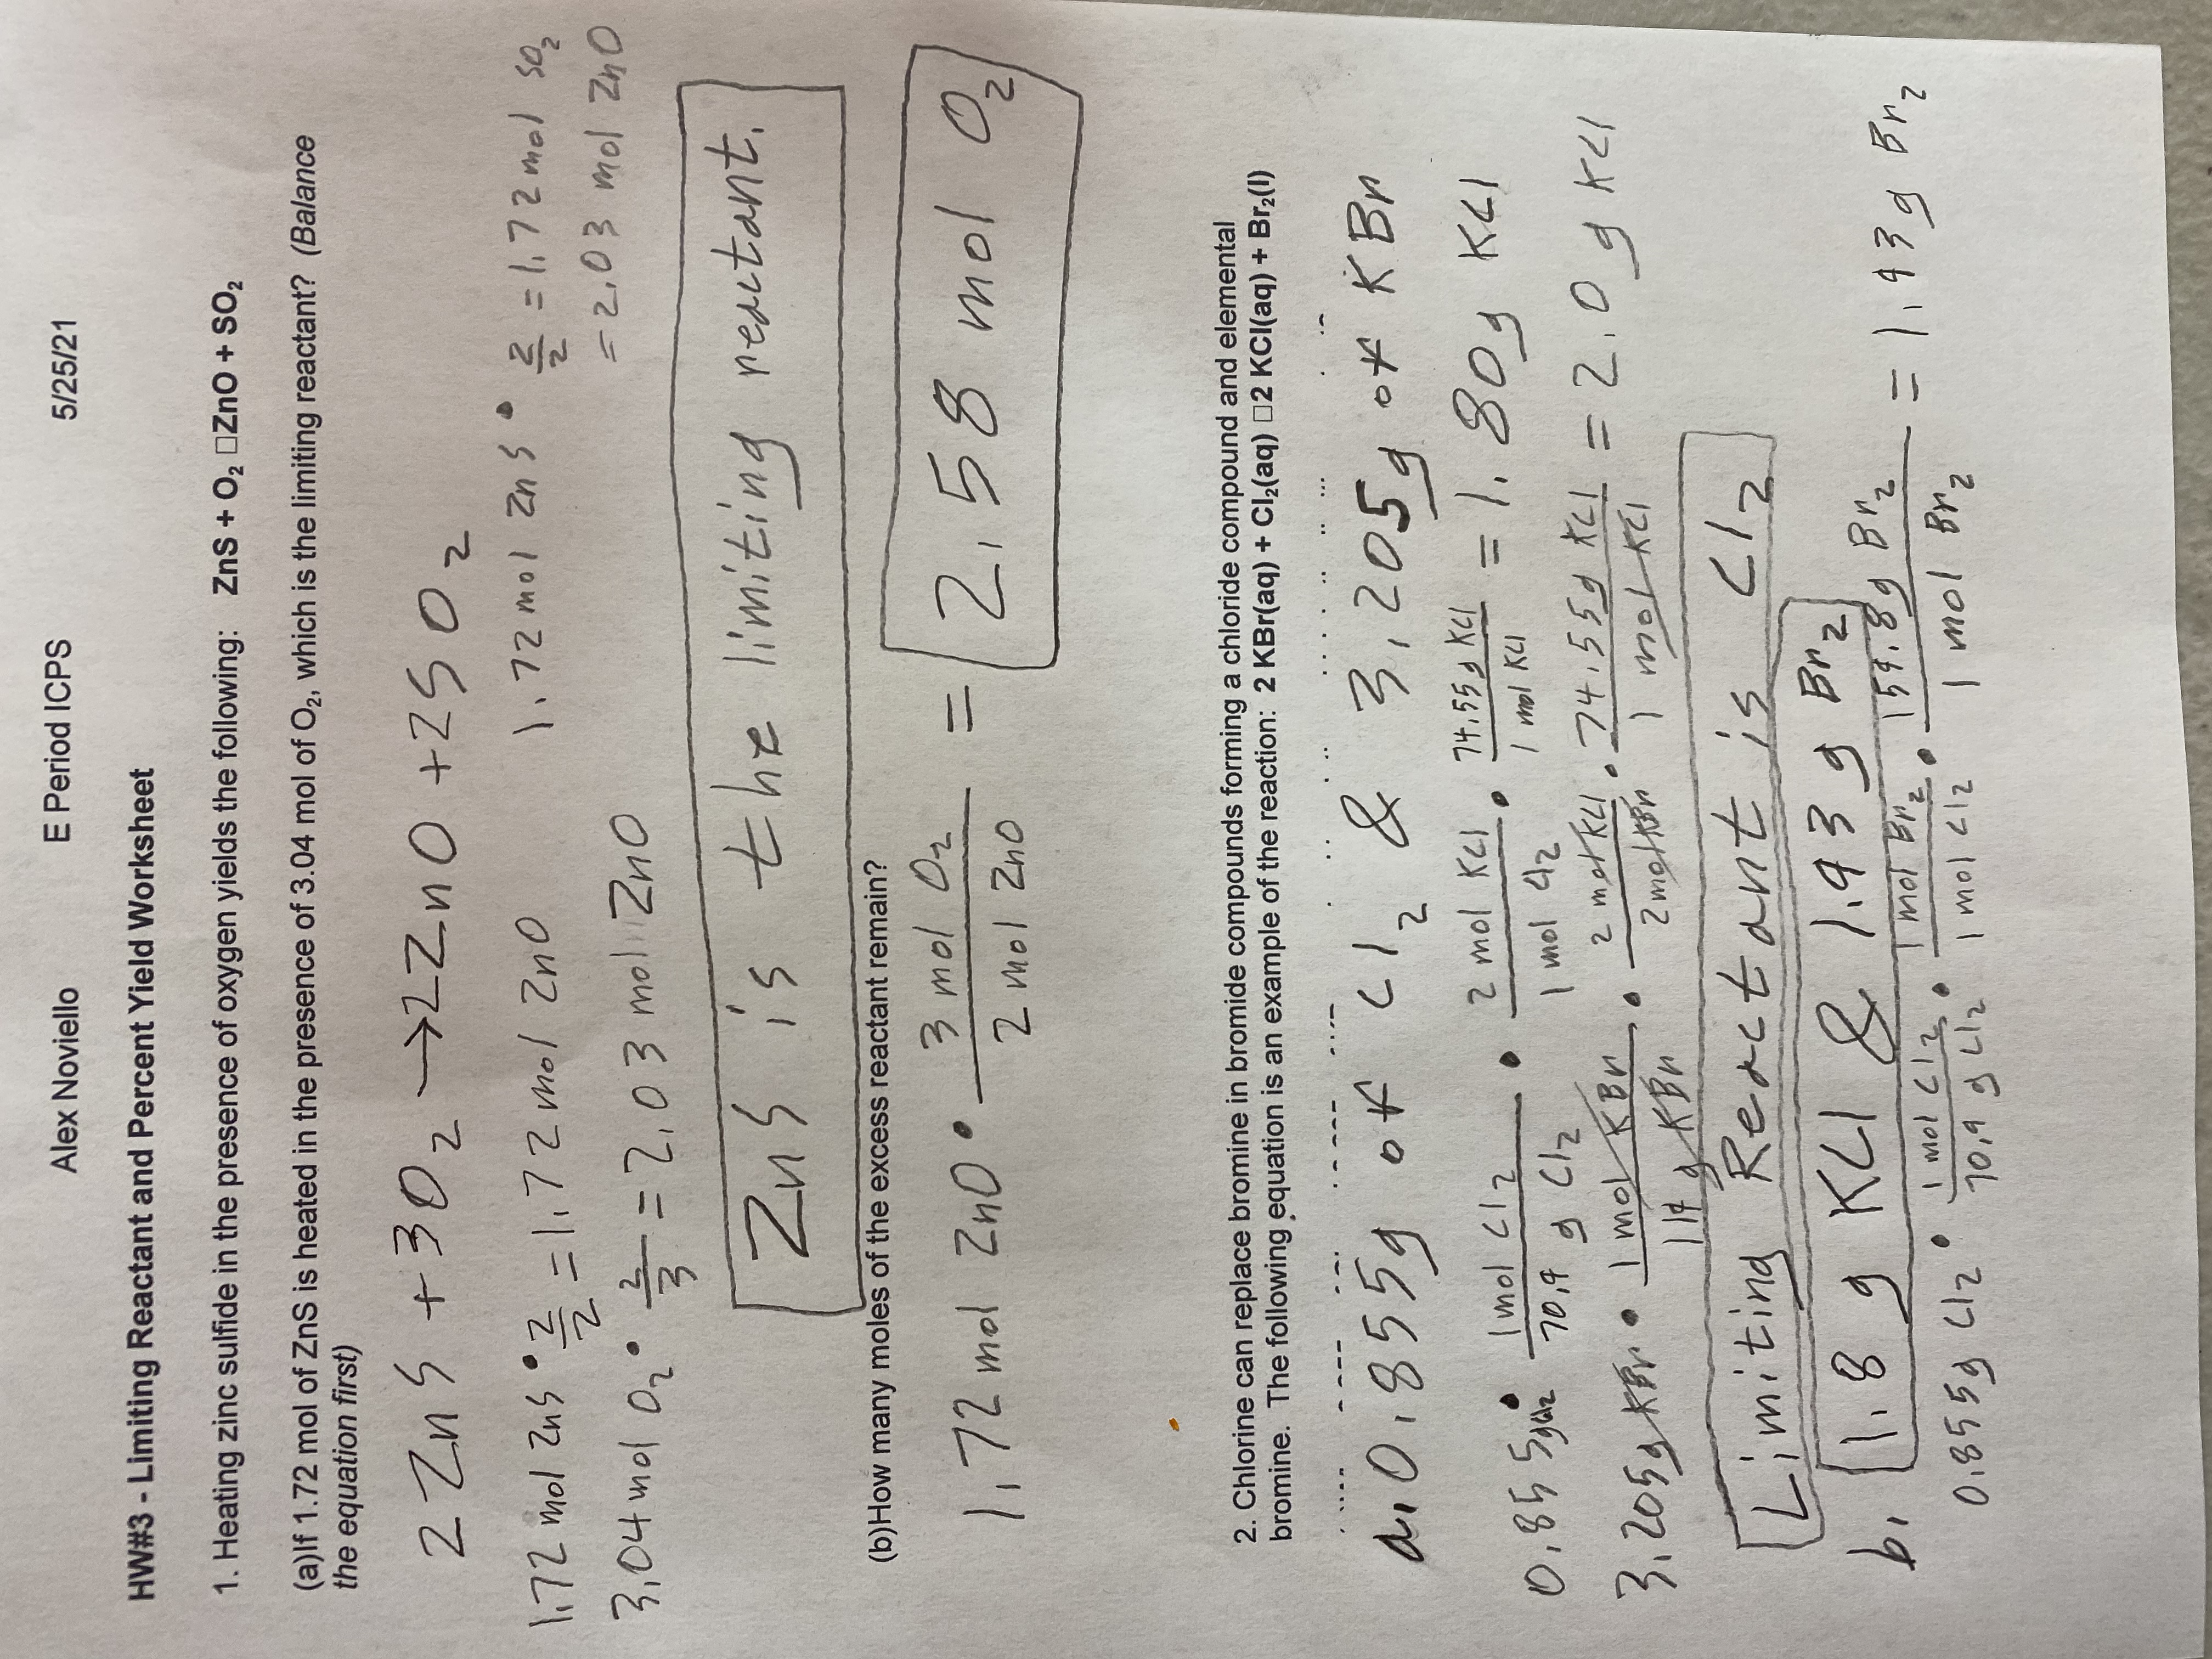 Alex Noviello E Period ICPS 5/25/21
HW#3 - Limiting Reactant and Percent Yield Worksheet
1. Heating zinc sulfide in the presence of oxygen yields the following: ZnS + O₂ □ZnO + SO₂
(a)If 1.72 mol of ZnS is heated in the presence of 3.04 mol of O₂, which is the limiting reactant? (Balance
the equation first)
2 ZnS + 3O₂ → 2ZnO + 2SO₂
1.72 mol ZnS • 2/2 = 1.72 mol ZnO 1.72 mol ZnS • 2/2 = 1.72 mol SO₂
= 2.03 mol ZnO
3.04 mol O₂ • 2/3 = 2.03 mol ZnO
ZnS is the limiting reactant.
(b)How many moles of the excess reactant remain?
1.72 mol ZnO • 3 mol O₂ / 2 mol ZnO = 2.58 mol O₂
2. Chlorine can replace bromine in bromide compounds forming a chloride compound and elemental
bromine. The following equation is an example of the reaction: 2 KBr(aq) + Cl₂(aq) □2 KCl(aq) + Br₂(l)
a. 0.855g of Cl₂ & 3.205g of KBr
0.855g Cl₂ • 1 mol Cl₂ / 70.9 g Cl₂ • 2 mol KCl / 1 mol Cl₂ • 74.55g KCl / 1 mol KCl = 1.80g KCl
3.205g KBr • 1 mol KBr / 119 g KBr • 2 mol KCl / 2 mol KBr • 74.55g KCl / 1 mol KCl = 2.0 g KCl
Limiting Reactant is Cl₂
b. 1.8 g KCl & 1.93 g Br₂
0.855g Cl₂ • 1 mol Cl₂ / 70.9 g Cl₂ • 1 mol Br₂ / 1 mol Cl₂ • 159.8g Br₂ / 1 mol Br₂ = 1.93g Br₂